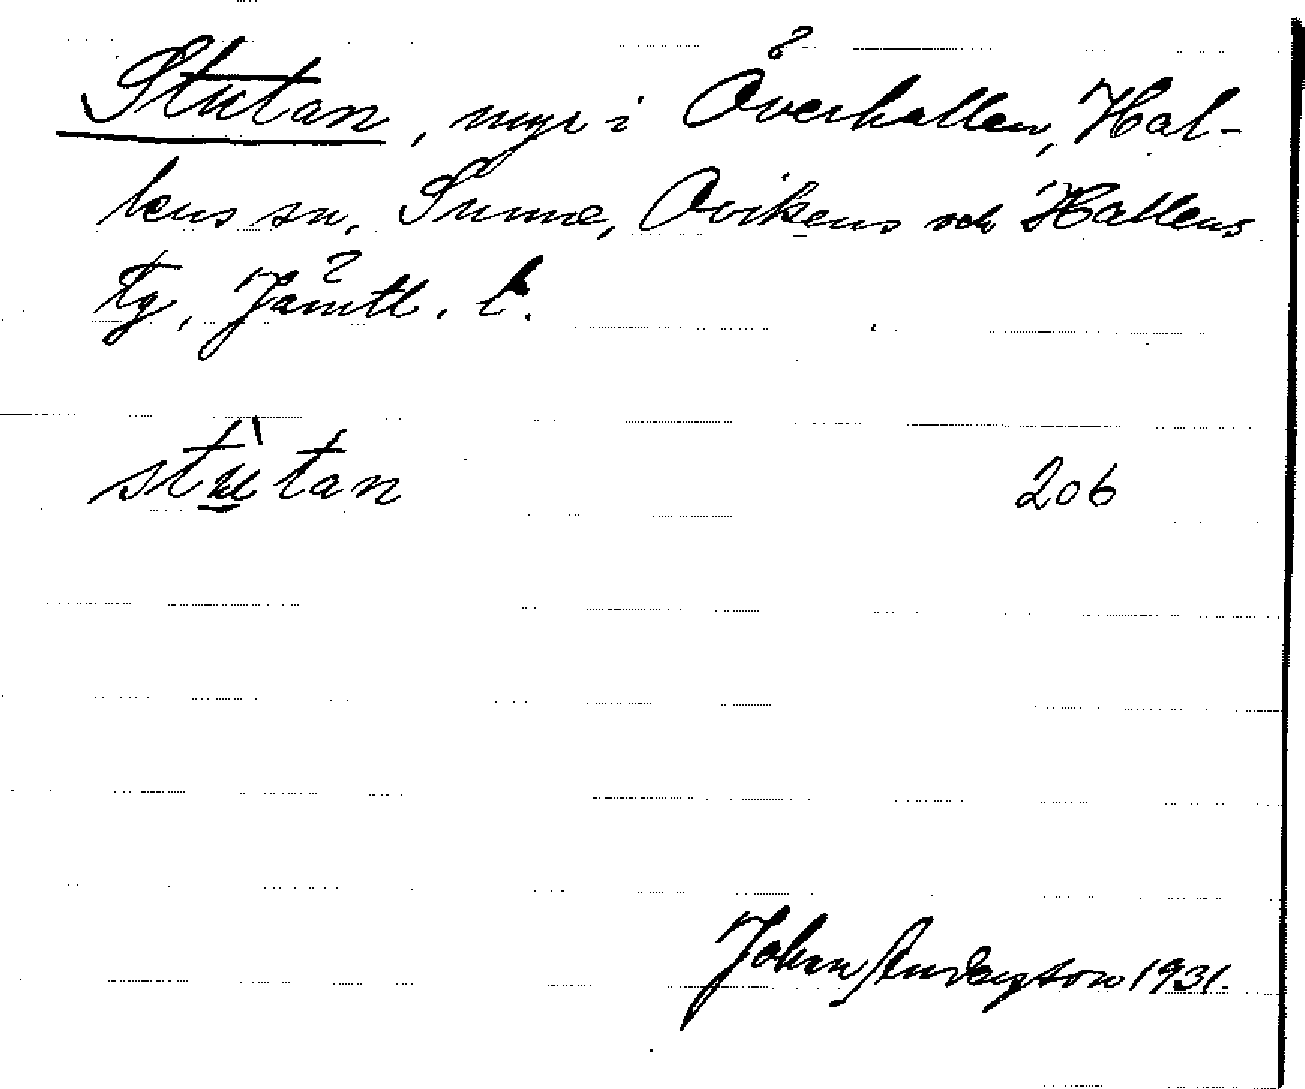 Stutan, myr i Överhallen, Hal-
lens sn, Sunne, Ovikens och Hallens
tg, Jämtl. l.
stù̱tan 206
Johan Anderson 1931.